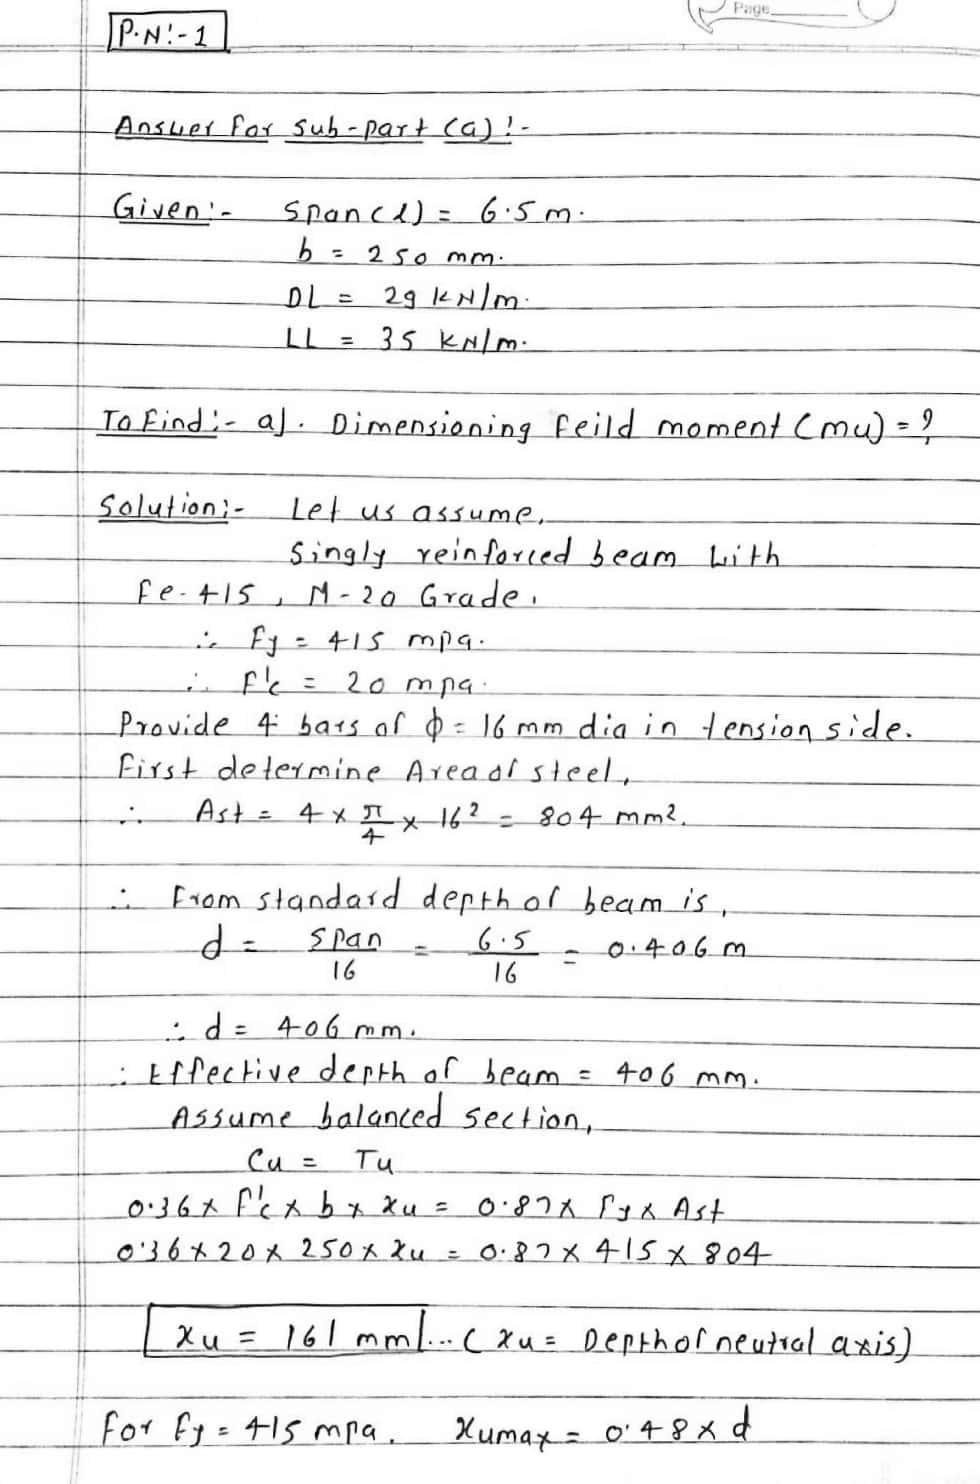 Page
P.N:-1
Answer for sub-part (a):-
Given:- Span(l) = 6.5 m.
b = 250 mm.
DL = 29 kN/m.
LL = 35 kN/m.
To Find:- a). Dimensioning feild moment (mu) = ?
Solution:- Let us assume,
Singly reinforced beam with
fe-415, M-20 Grade.
∴ Fy = 415 mpa.
∴ F'c = 20 mpa.
Provide 4 bars of ϕ = 16 mm dia in tension side.
First determine Area of steel,
∴ Ast = 4 × π/4 × 16² = 804 mm².
∴ From standard depth of beam is,
d = span/16 = 6.5/16 = 0.406 m
∴ d = 406 mm.
∴ Effective depth of beam = 406 mm.
Assume balanced section,
Cu = Tu
0.36 × f'c × b × xu = 0.87 × fy × Ast
0.36 × 20 × 250 × xu = 0.87 × 415 × 804
xu = 161 mm ... (xu = Depth of neutral axis)
For fy = 415 mpa. xumax = 0.48 × d